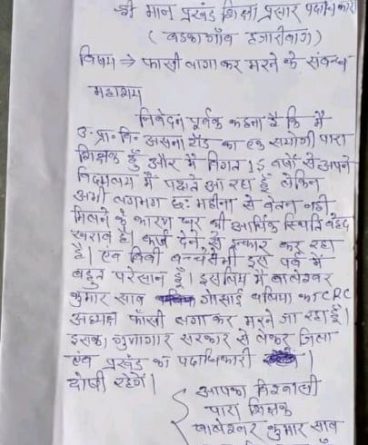 श्री मान प्रखंड शिक्षा प्रसार पदाधिकारी
( बड़कागाँव हजारीबाग )
विषय → फाँसी लगाकर मरने के संबन्ध
महाशय
निवेदन पूर्वक कहना है कि मैं
उ॰ प्रा॰ वि॰ असना टांड का एक सहयोगी पारा
शिक्षक हूँ और मैं विगत 15 वर्षों से अपने
विद्यालय में पढ़ाते आ रहा हूँ लेकिन
अभी लगभग छः महीना से वेतन नही
मिलने के कारण घर की आर्थिक स्थिति बेहद
खराब है। कर्ज देने से इन्कार कर रहा
है। एवं बीबी बच्चे भी इस पर्व में
बहुत परेसान है। इसलिए मैं बालेश्वर
कुमार साव गोसाई बलिया का CRC
अध्यक्ष फाँसी लगाकर मरने जा रहा हूँ।
इसका गुनागार सरकार से लेकर जिला
एवं प्रखंड का पदाधिकारी
दोषी रहेगें।
आपका विश्वासी
पारा शिक्षक
बालेश्वर कुमार साव